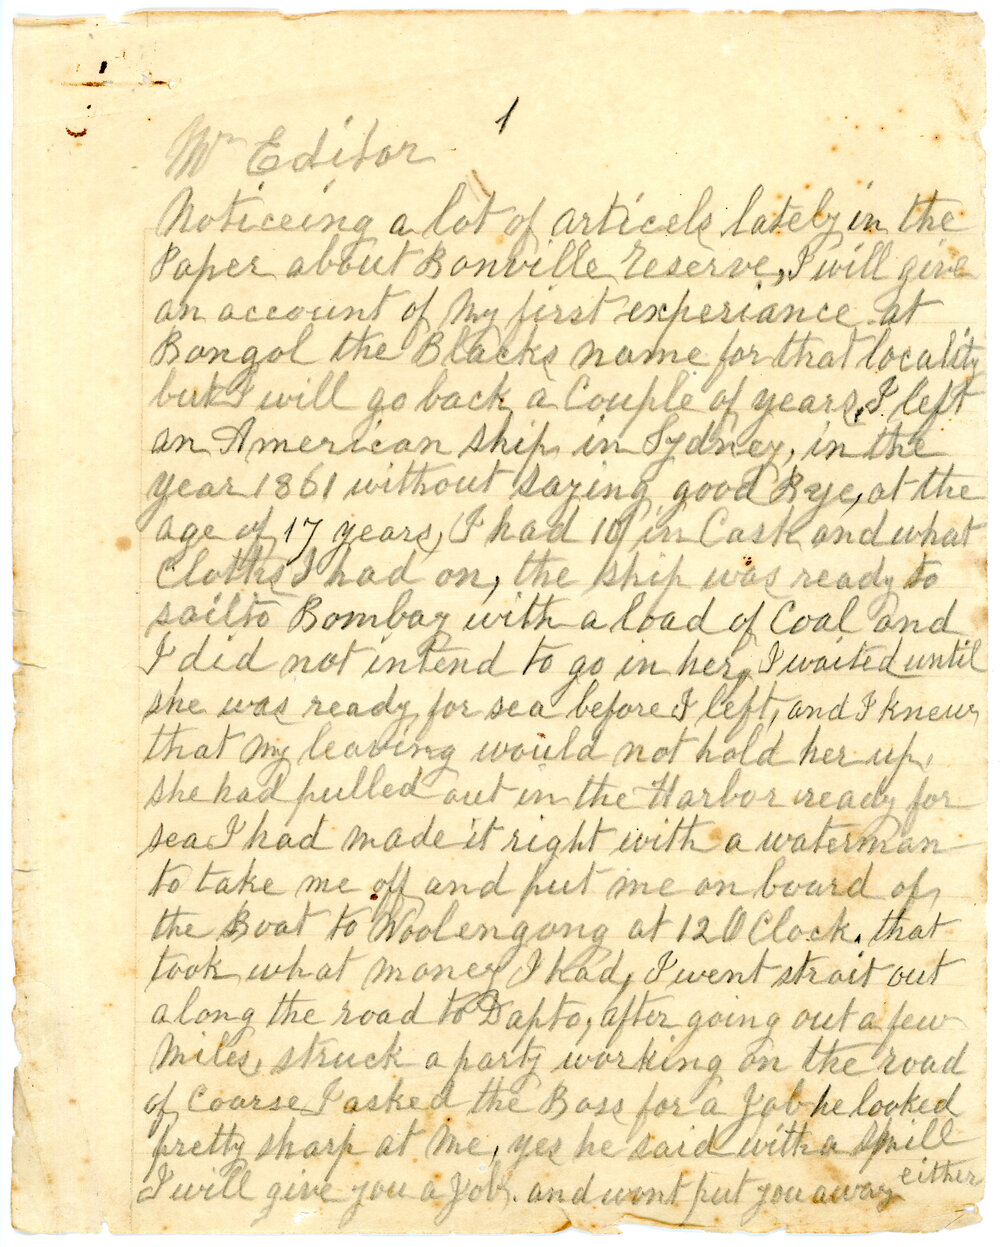 1
Mr Editor
Noticeing a lot of articels lately in the
Paper about Bonville Reserve, I will give
an account of My first experiance at
Bongol the Blacks name for that locality
but I will go back a Couple of years, I left
an American ship in Sydney, in the
year 1861 without saying good Bye, at the
age of 17 years, I had 10/ in Cash and what
Cloths I had on, the ship was ready to
sail to Bombay with a load of Coal and
I did not intend to go in her, I waited until
she was ready for sea before I left, and I knew
that My leaving would not hold her up,
she had pulled out in the Harbor ready for
sea I had made it right with a waterman
to take me off and put me on board of
the Boat to Woolengong at 12 O Clock. that
took what money I had, I went strait out
along the road to Dapto, after going out a few
Miles, struck a party working on the road
of Coarse I asked the Boss for a Job he looked
pretty sharp at Me, yes he said with a Smill
I will give you a Job. and wont put you away either